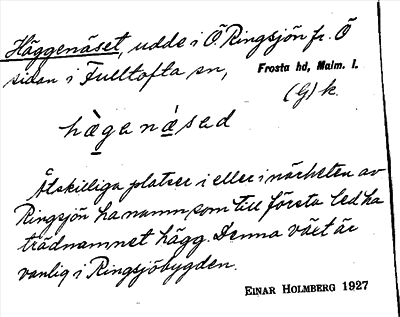 Häggenäset, udde i Ö. Ringsjön fr. Ö
sidan i Fulltofta sn,
Frosta hd, Malm. l.
(G) k.
hàgenásad
Åtskilliga platser i eller i närheten av
Ringsjön ha namn, som till första led ha
trädnamnet hägg. Denna växt är
vanlig i Ringsjöbygden.
EINAR HOLMBERG 1927